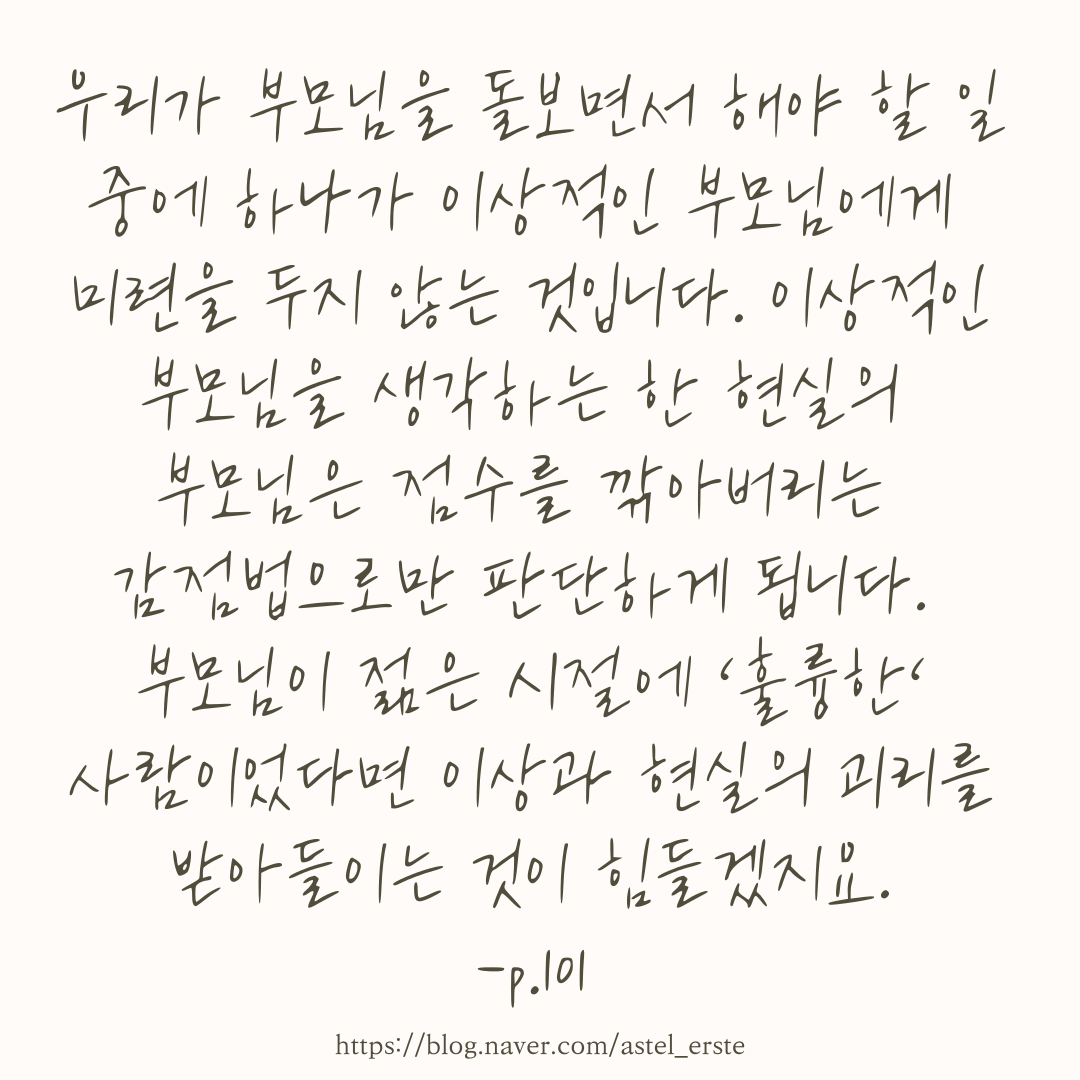 우리가 부모님을 돌보면서 해야 할 일
중에 하나가 이상적인 부모님에게
미련을 두지 않는 것입니다. 이상적인
부모님을 생각하는 한 현실의
부모님은 점수를 깎아버리는
감점법으로만 판단하게 됩니다.
부모님이 젊은 시절에 ‘훌륭한‘
사람이었다면 이상과 현실의 괴리를
받아들이는 것이 힘들겠지요.
-p.101
https://blog.naver.com/astel_erste